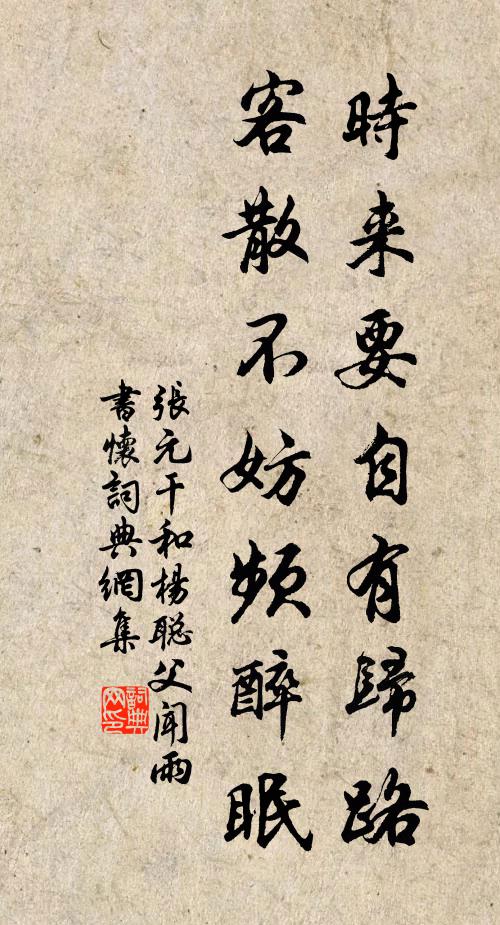 時来要自有歸路
客散不妨頻醉眠
張元干和楊聡父闻雨
書懷詞典網集
詞典网印